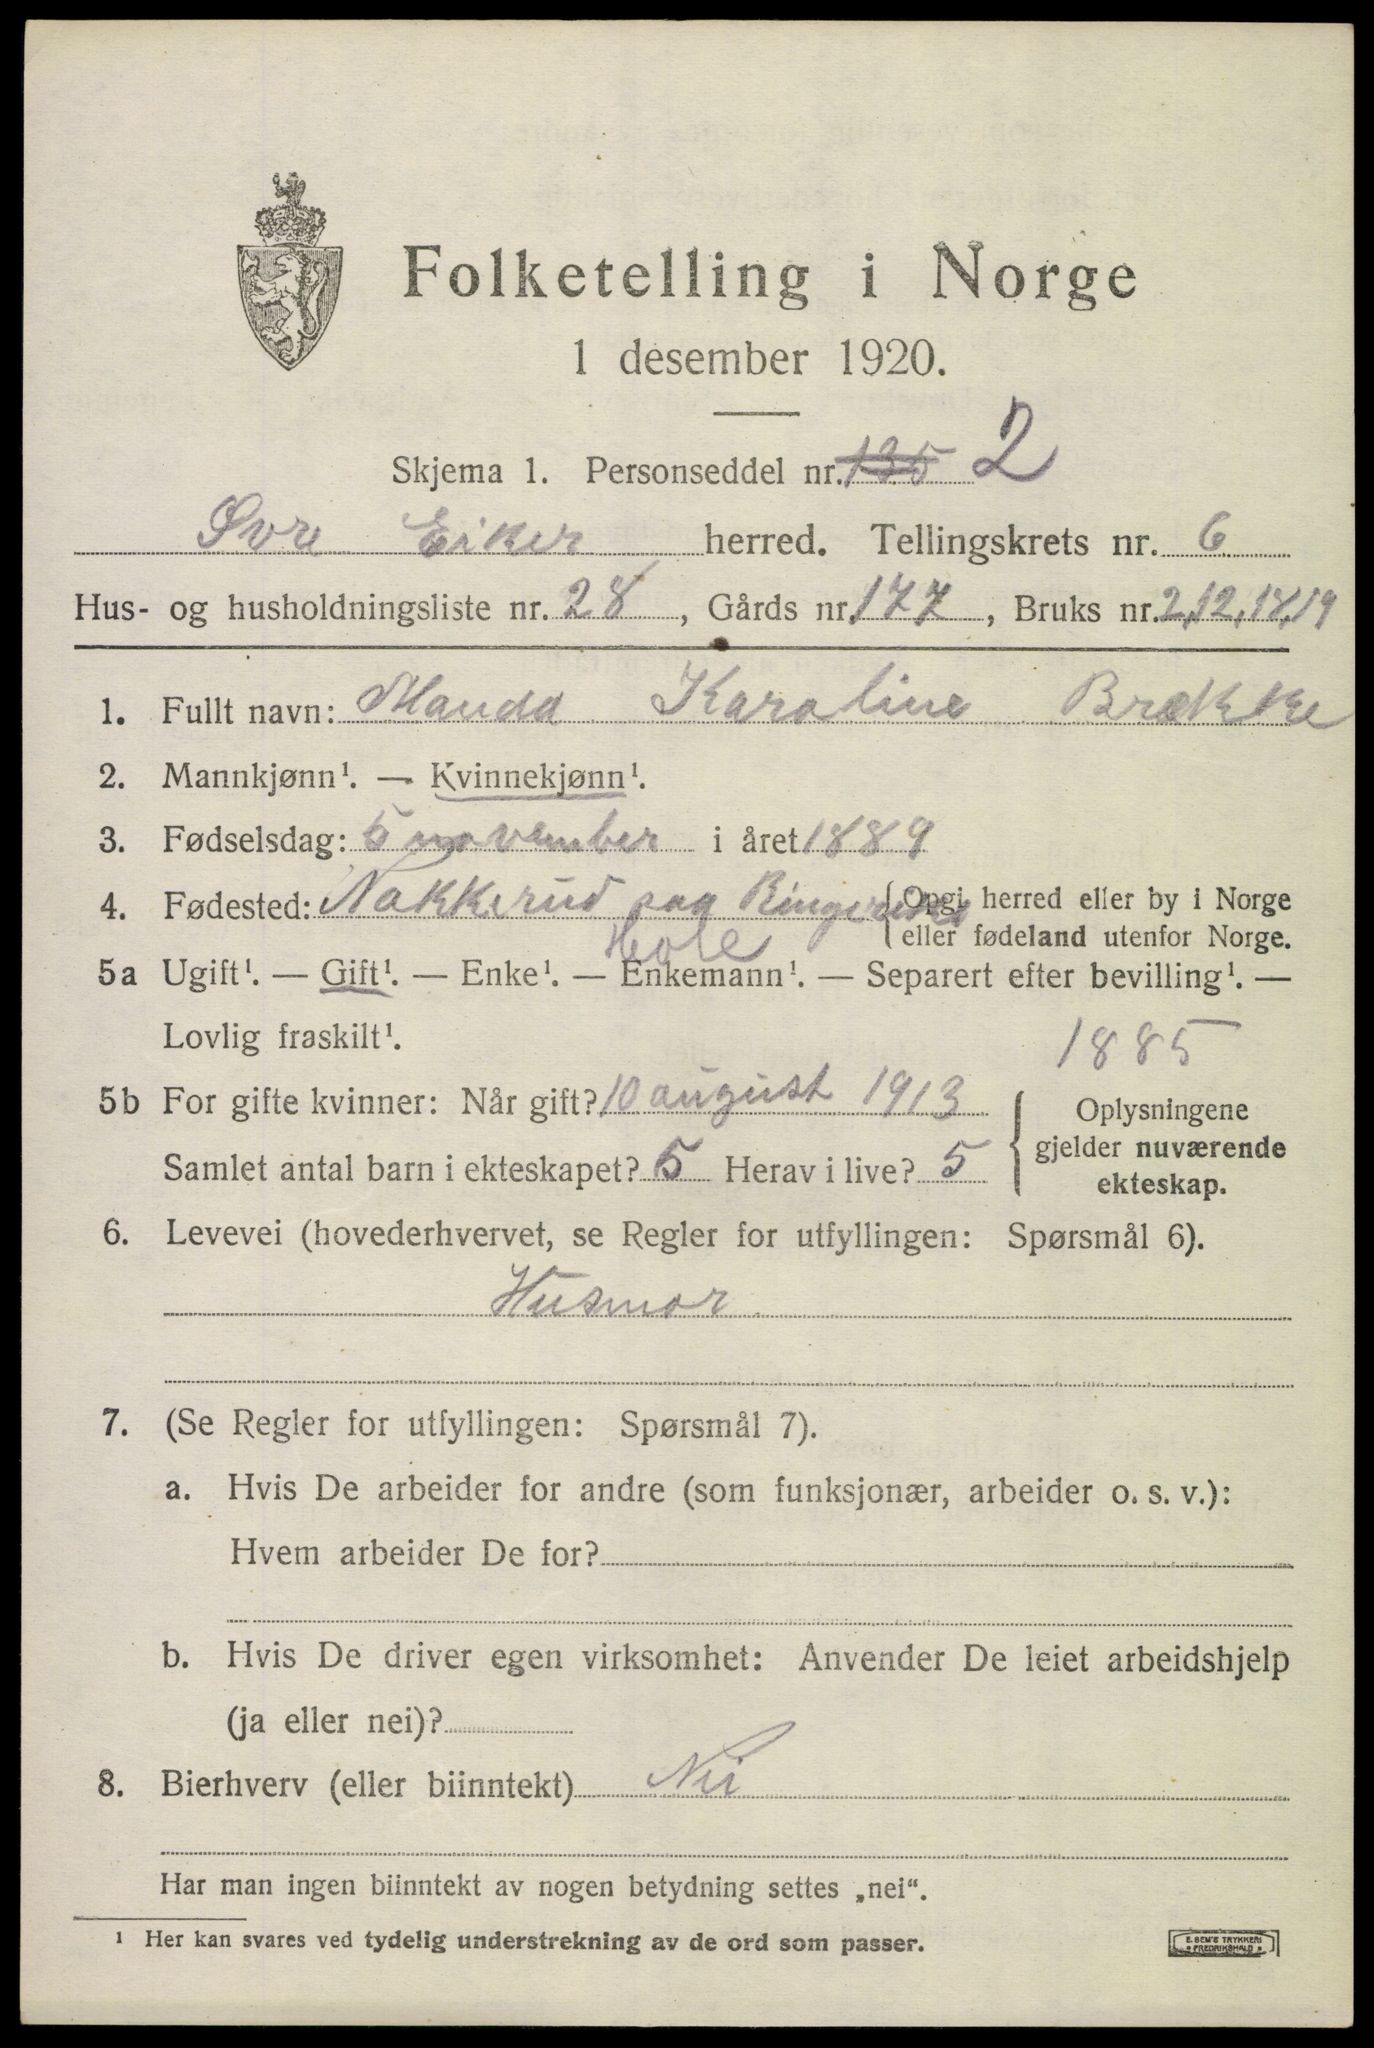 Folketelling i Norge
1 desember 1920.
Skjema 1. Personseddel nr. 135 2
Øvre Eiker herred. Tellingskrets nr. 6
Hus- og husholdningsliste nr. 28, Gårds nr. 177, Bruks nr. 2,12,18,19
1. Fullt navn: Mauda Karoline Brække
2. Mannkjønn¹. — Kvinnekjønn¹.
3. Fødselsdag: 5 november i året 1889
4. Fødested: Nakkerud paa Ringerike { Opgi herred eller by i Norge
eller fødeland utenfor Norge.
Hole
5a Ugift¹. — Gift¹. — Enke¹. — Enkemann¹. — Separert efter bevilling¹. —
Lovlig fraskilt¹.
1885
5b For gifte kvinner: Når gift? 10 august 1913 { Oplysningene
gjelder nuværende
Samlet antal barn i ekteskapet? 5 Herav i live? 5
ekteskap.
6. Levevei (hovederhvervet, se Regler for utfyllingen: Spørsmål 6).
Husmor
7. (Se Regler for utfyllingen: Spørsmål 7).
a. Hvis De arbeider for andre (som funksjonær, arbeider o. s. v.):
Hvem arbeider De for?
b. Hvis De driver egen virksomhet: Anvender De leiet arbeidshjelp
(ja eller nei)?
8. Bierhverv (eller biinntekt) Nei
Har man ingen biinntekt av nogen betydning settes „nei“.
¹ Her kan svares ved tydelig understrekning av de ord som passer.
E. SEM'S TRYKKERI
FREDRIKSHALD